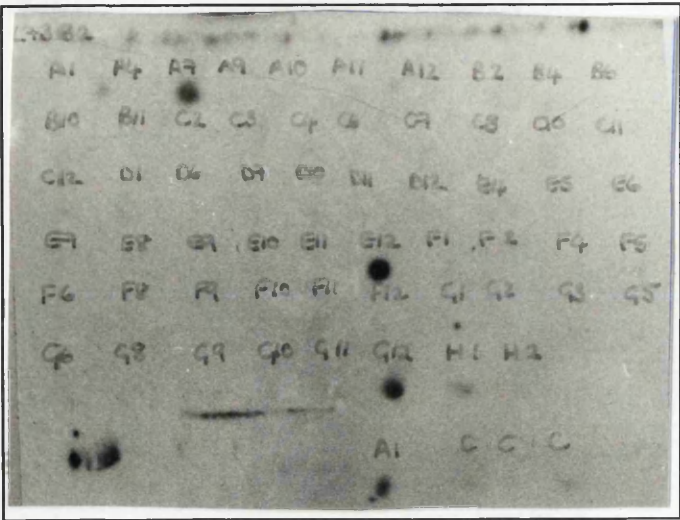 A1 A4 A7 A9 A10 A11 A12 B2 B4 B6
B10 B11 C2 C3 C4 C6 C7 C8 C10 C11
C12 D1 D6 D7 D10 D11 D12 E4 E5 E6
E7 E8 E9 E10 E11 E12 F1 F2 F4 F5
F6 F8 F9 F10 F11 F12 G1 G2 G3 G5
G6 G8 G9 G10 G11 G12 H1 H2
A1 C C C